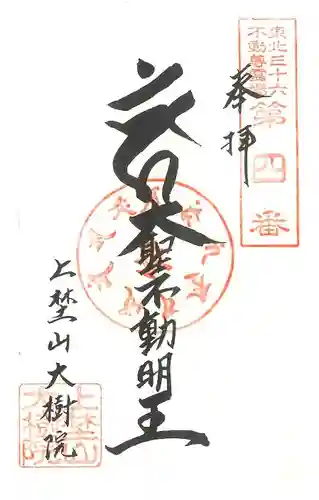 東北三十六
不動尊霊場
第四番
奉拝
大聖不動明王
上埜山大樹院